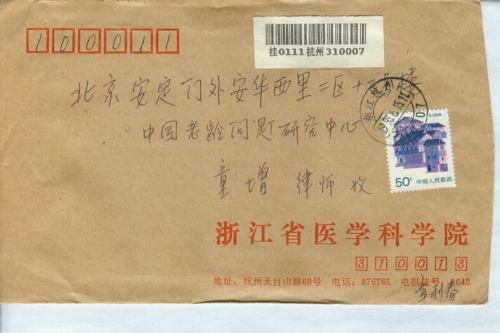 100011
挂0111杭州310007
北京安定门外安华西里二区十
中国老龄问题研究中心
童增 律师 收
浙江杭州
50分 中国人民邮政
浙江省医学科学院
310013
地址：杭州天目山路60号 电话：876765 电报挂号：0642